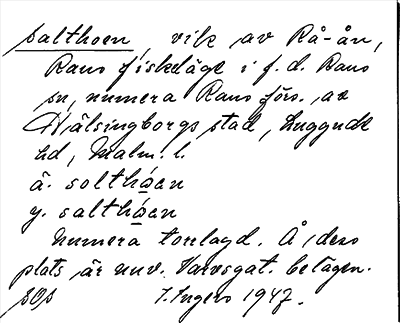 salthoen, vik av Rå-ån,
Raus fiskeläge i f.d. Raus
sn, numera Raus förs. av
Hälsingborgs stad, Luggude
hd, Malm. l.
ä. solthøen
y. salthøen
Numera torrlagd. Å dess
plats är nuv. Varvsgat. belägen.
SOS I. Ingers 1947.